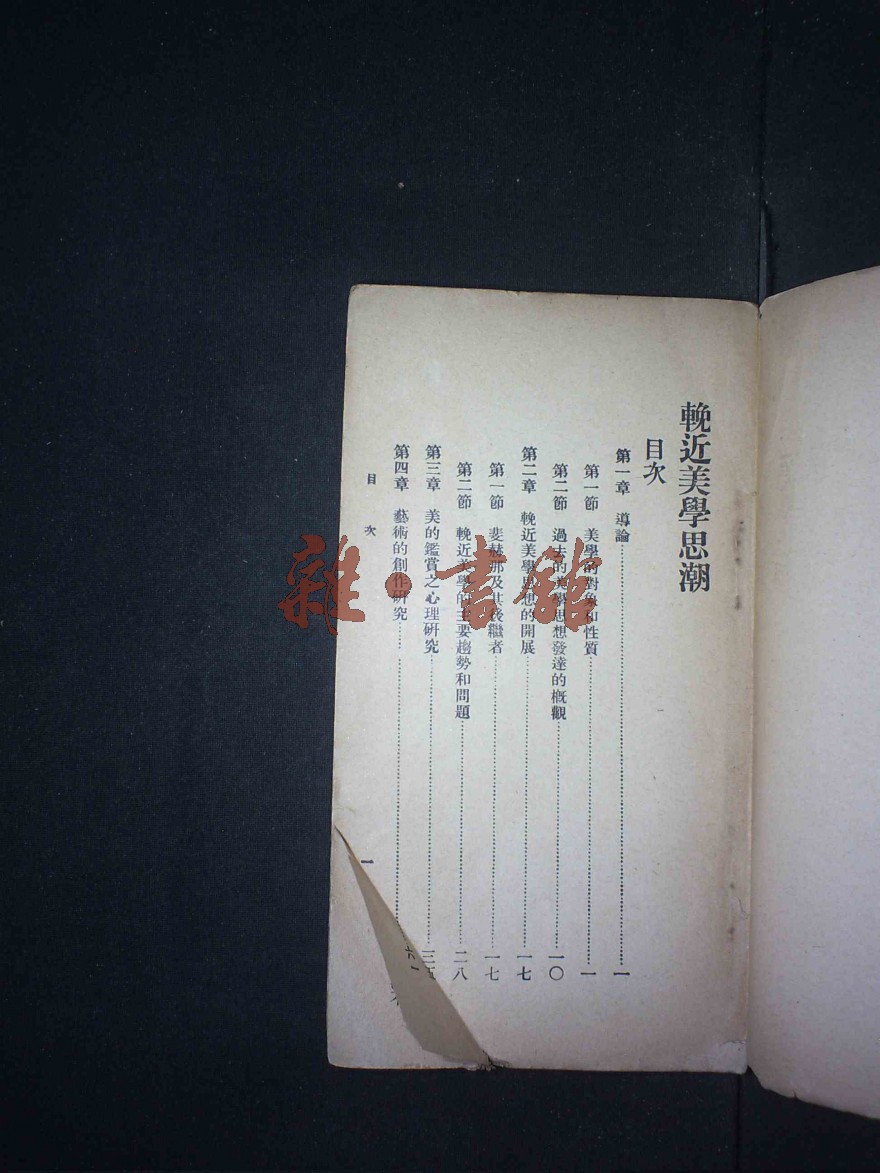 輓近美學思潮
目次
第一章 導論……一
第一節 美學的對象和性質……一
第二節 過去的美學思想發達的概觀……一〇
第二章 輓近美學思想的開展……一七
第一節 斐赫那及其後繼者……一七
第二節 輓近美學的主要趨勢和問題……二八
第三章 美的鑑賞之心理研究……三五
第四章 藝術的創作研究……
目次
一
雜·書館